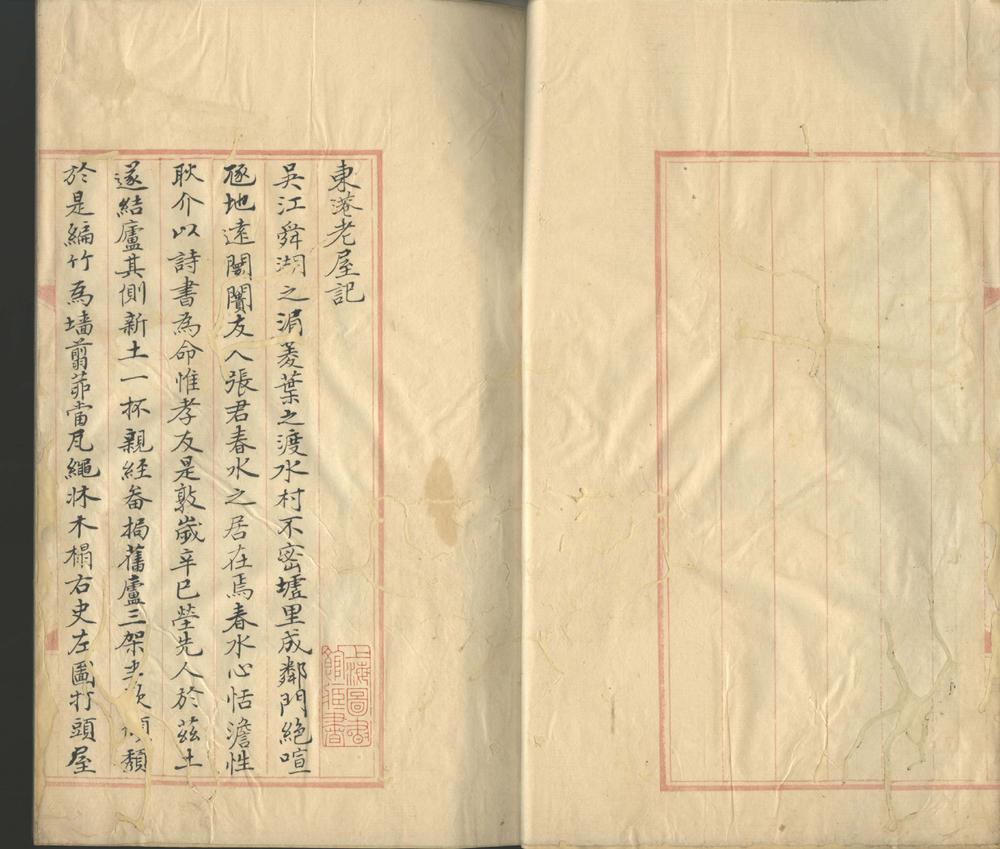 東港老屋記
吳江舜湖之湄菱葉之渡水村不密墟里成鄰門絶喧
豗地遠闤闠友人張君春水之居在焉春水心恬澹性
耿介以詩書為命惟孝友是敦歲辛巳塋先人於茲土
遂結廬其側新土一抔親経畚挶舊廬三架頽
於是編竹為墙翦茆當瓦繩牀木榻右史左圖打頭屋
上海圖書館所藏